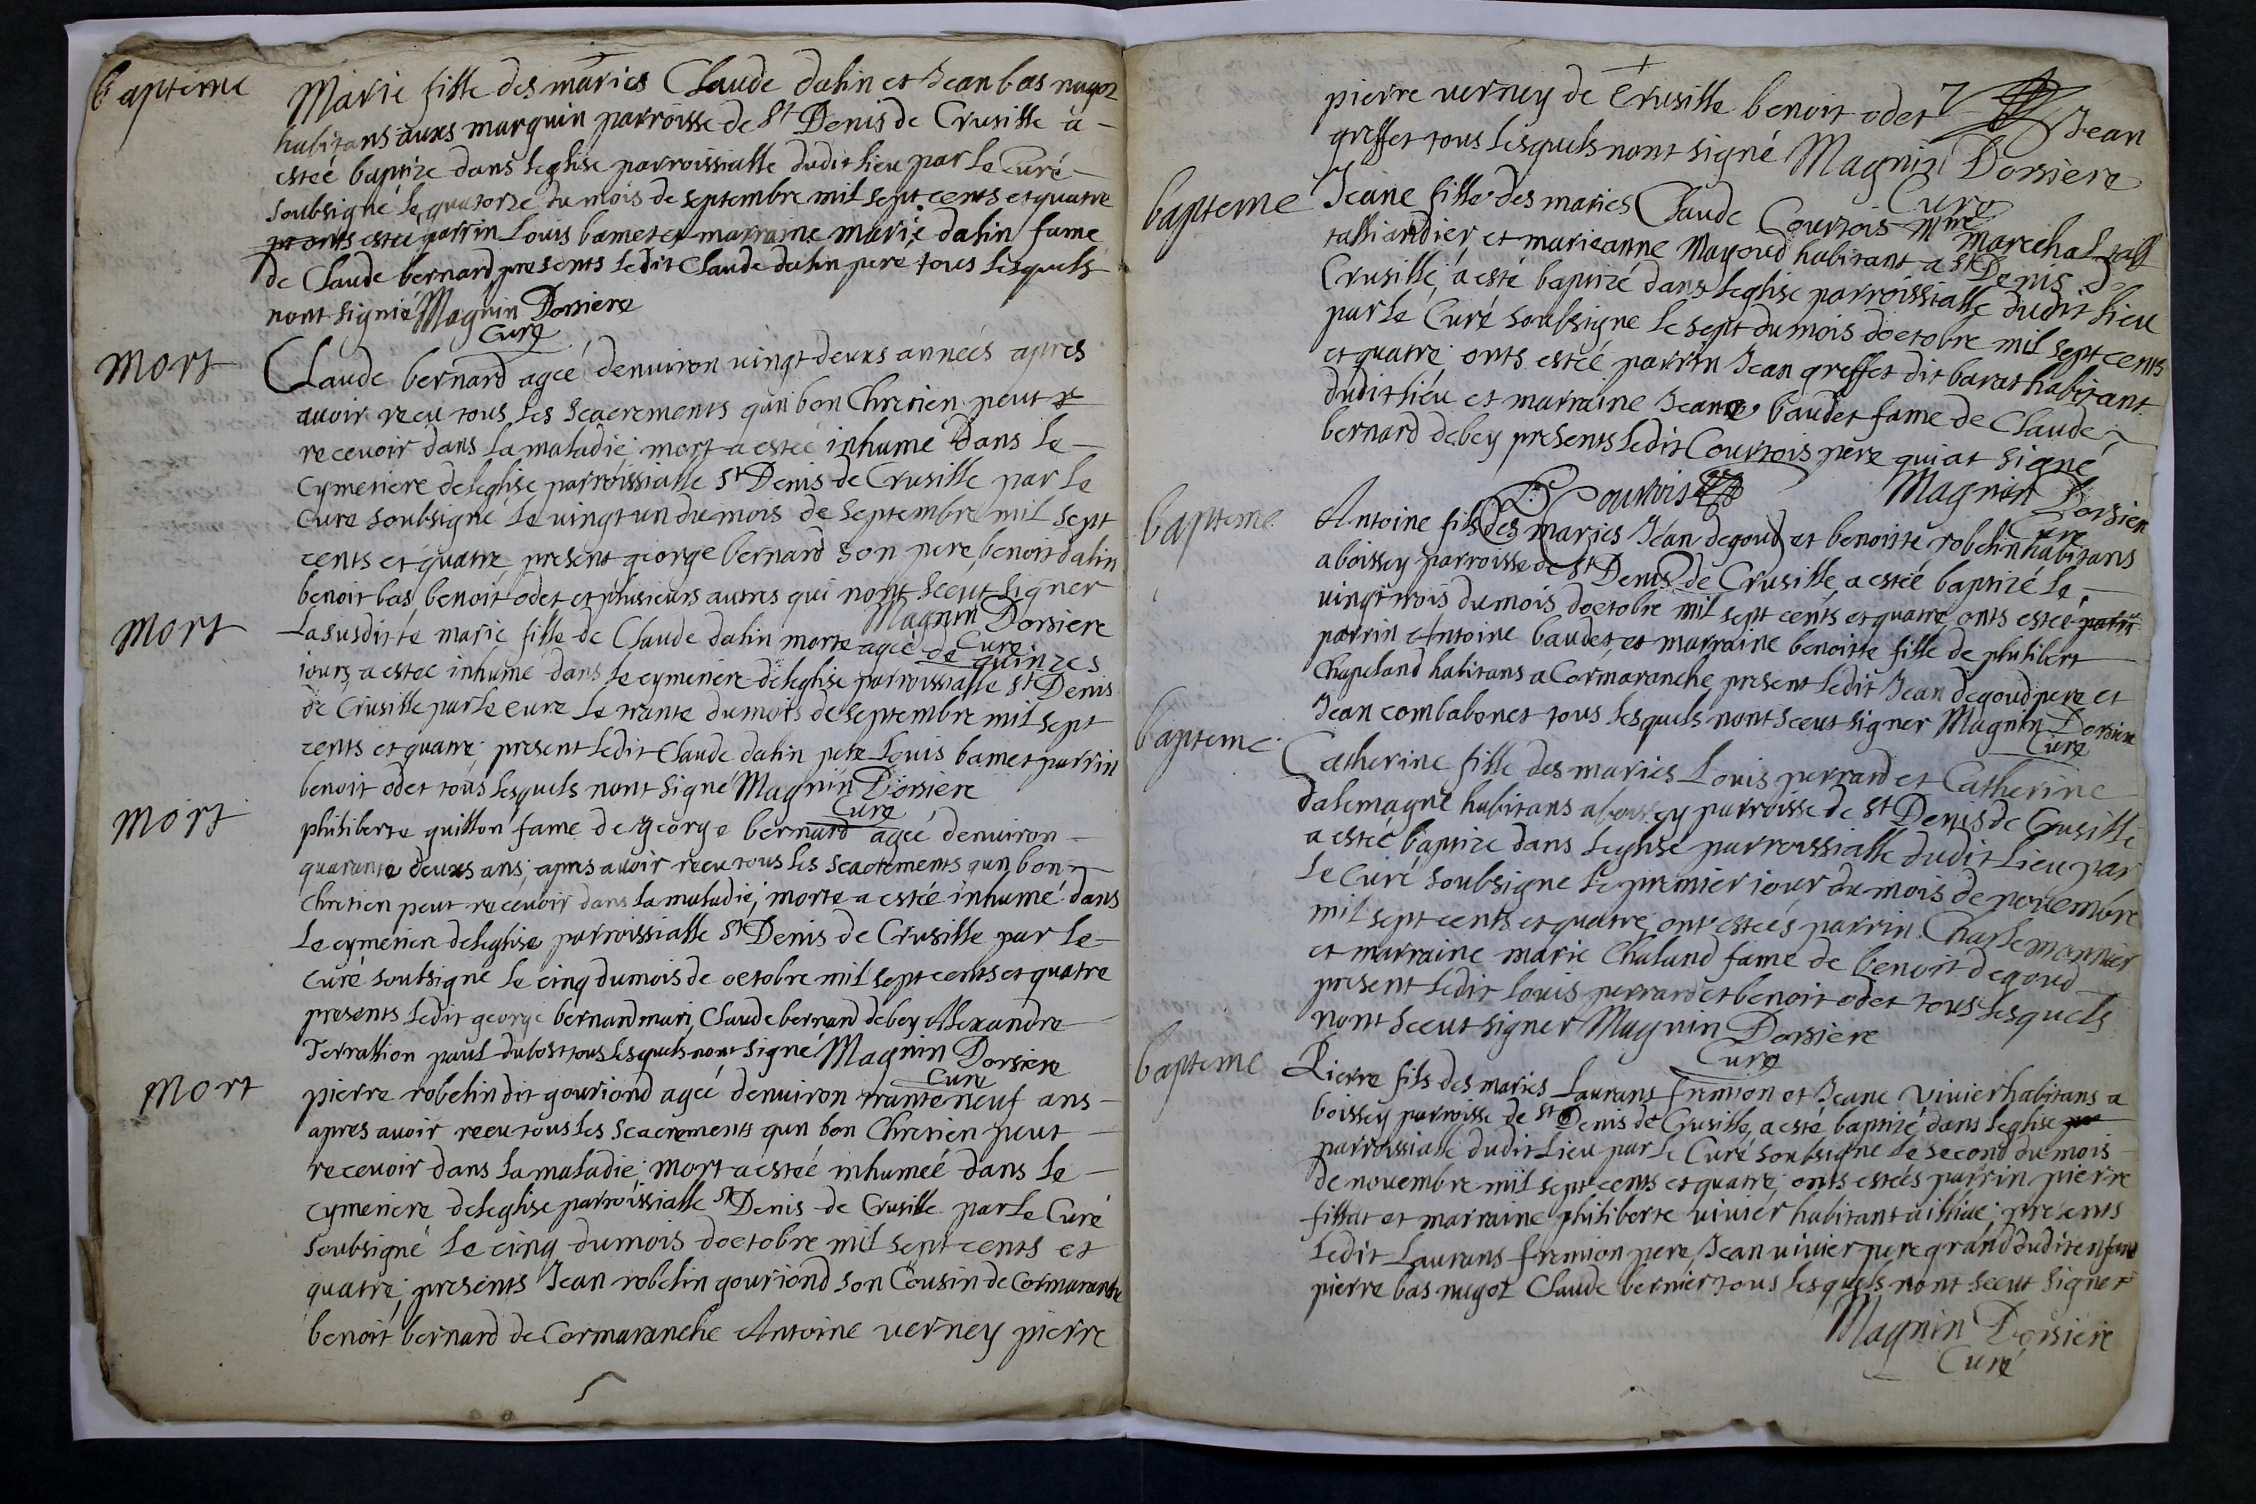 bapteme
Marie fille des maries Claude dalin et Jean bas nugoz
habitans auxs marquin parroisse de St Denis de Crusille a
esteé baptize dans leglise parroissialle dudit lieu par le Curé
soubsigné le quatorze du mois de septembre mil sept cents et quatre
onts esteé parrin Louis bamet et marraine marie dalin fame
de Claude bernard presents ledit Claude dalin pere tous lesquels
nont signié Magnin Dorsiere
Curé
mort
Claude bernard ageé denuiron vingt deuxs anneés apres
auoir receu tous les seacrements quun bon Chretien peut
receuoir dans la maladie mort a esteé inhumé dans le
cymetiere deleglise parroissialle St Denis de Crusille par le
Curé soubsigné le vingt un du mois de septembre mil sept
cents et quatre present george bernard son pere, benoit dalin
benoit bas, benoit odet et plusieurs autres qui nont sceut signer
Magnin Dorsiere
Curé
mort
La susditte marie fille de Claude dalin morte ageé de quinzes
iours a esteé inhumé dans le cymetiere deleglise parroissialle St Denis
de Crusille par le Curé le trante du mois de septembre mil sept
cents et quatre, present ledit Claude dalin pere Louis bamet parrin
benoit odet tous lesquels nont signé Magnin Dorsiere
Curé
mort
philiberte guillon fame de george bernard ageé denuiron
quarante deuxs ans, apres auoir receu tous les seacrements qun bon
Chretien peut receuoir dans la maladie, morte a esteé inhumé dans
le cymetiere deleglise parroissialle St Denis de Crusille par le
Curé soubsigné le cinq du mois de octobre mil sept cents et quatre
presents ledit george bernard mari, Claude bernard debey Alexandre
Terrallion paul dubost tous lesquels nont signé Magnin Dorsiere
Curé
mort
pierre robelin dit gouriond ageé denuiron trante neuf ans
apres auoir receu tous les seacrements qun bon Chretien peut
receuoir dans la maladie, mort a esteé inhumeé dans le
cymetiere deleglise parroissialle St Denis de Crusille par le Curé
soubsigné le cinq du mois doctobre mil sept cents et
quatre, presents Jean robelin gouriond son Cousin de Cormaranche
benoit bernard de Cormaranche Antoine verney pierre
pierre verney de Crusille benoit odet Jean
greffet tous lesquels nont signé Magnin Dorsiere
Curé
bapteme
Jeane fille des maries Claude Courtois Mtre Marechal
talliandier, et marieanne Mayoud habitant a St Denis de
Crusille, a esté baptizé dans leglise parroissialle dudit lieu
par le Curé soubsigne le sept du mois doctobre mil sept cents
et quatre onts esteé parrin Jean greffet dit barat habitant
dudit lieu et marraine Jeane baudet fame de Claude
bernard debey presents ledit Courtois pere qui at signé
Courtois Magnin Dorsiere
Curé
bapteme
Antoine fils des maries Jean degoud et benoiste robelin habitans
a boissey parroisse de St Denis de Crusille a esteé baptizé le
vingt trois du mois doctobre mil sept cents et quatre onts esteé
parrin Antoine baudet et marraine benoitte fille de philibert
Chapeland habitans a Cormaranche, present ledit Jean degoud pere et
Jean combabonet tous lesquels nont sceut signer Magnin Dorsiere
Curé
bapteme
Catherine fille des maries Louis perrard et Catherine
dalemagne habitans a boissey parroisse de St Denis de Crusille
a esteé baptize dans leglise parroissialle dudit lieu par
le Curé soubsigne le premier iour du mois de nouembre
mil sept cents et quatre, ont esteés parrin Charle monnier
et marraine marie Chaland fame de benoit degoud
present ledit Louis perrard et benoit odet tous lesquels
nont sceut signer Magnin Dorsiere
Curé
bapteme
Pierre fils des maries Laurans fremion et Jeane vivier habitans a
boissey parroisse de St Denis de Crusille, a esté baptizé dans leglise
parroissialle dudit lieu par le Curé soubsigné le second du mois
de novembre mil sept cents et quatre, onts esteés parrin pierre
fillat et marraine philiberte vivier habitant a illiac, presents
ledit Laurans fremion pere, Jean vivier pere grand dudit enfant
pierre bas nugoz Claude bernier tous lesquels nont sceut signer
Magnin Dorsiere
Curé